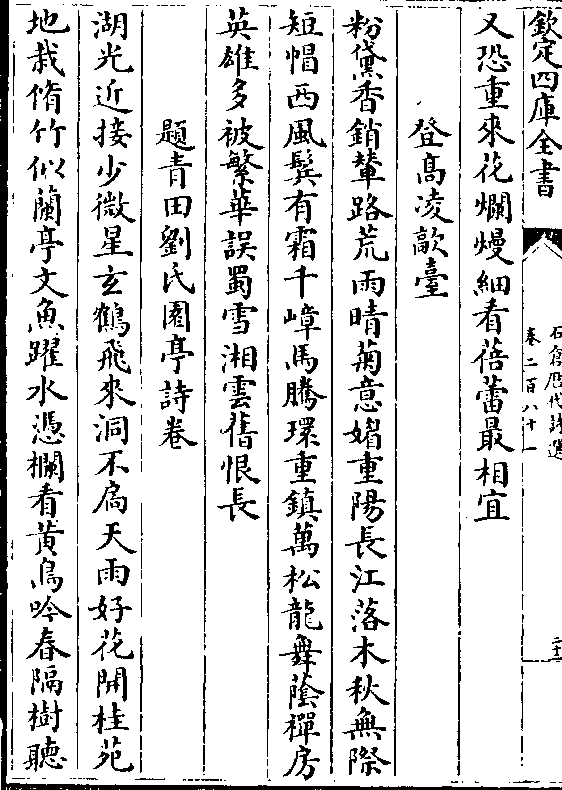 欽定四庫全書
石倉歴代詩選
卷二百八十一
又恐重來花爛熳細看蓓蕾最相宜
登髙凌歊臺
粉黛香銷輦路荒雨晴菊意媚重陽長江落木秋無際
短帽西風鬂有霜千嶂馬騰環重鎮萬松龍舞蔭禪房
英雄多被繁華誤蜀雪湘雲舊恨長
題青田劉氏園亭詩卷
湖光近接少微星玄鶴飛來洞不扃天雨好花開桂苑
地栽脩竹似蘭亭文魚躍水憑欄看黄鳥吟春隔樹聽